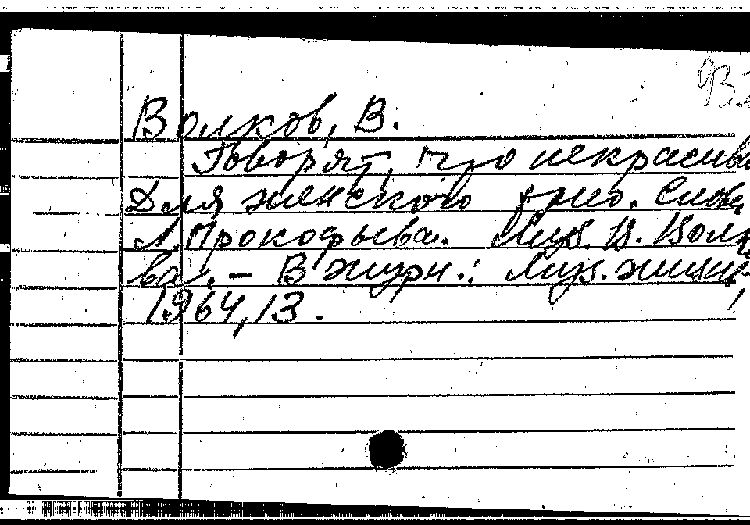 Волков, В.
Говорят, что некрасива
Для женского трио. Слова
А. Прокофьева. Муз. В. Волко
ва. – В журн.: Муз. жизнь,
1964, 13.